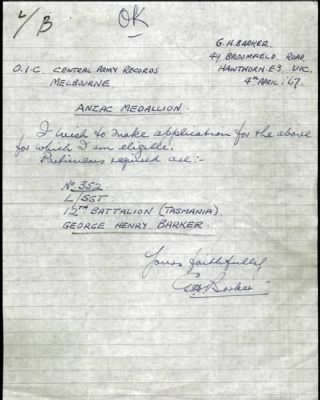 L/B
OK
G.H. BARKER.
49 BROOMFIELD ROAD,
HAWTHORN E.3. VIC.
4TH APRIL, '67.
O.I.C. CENTRAL ARMY RECORDS
MELBOURNE.
ANZAC MEDALLION.
I wish to make application for the above
for which I am eligible.
Particulars required are:-
No 352
L/SGT
12TH BATTALION (TASMANIA)
GEORGE HENRY BARKER.
Yours faithfully
G.H. Barker